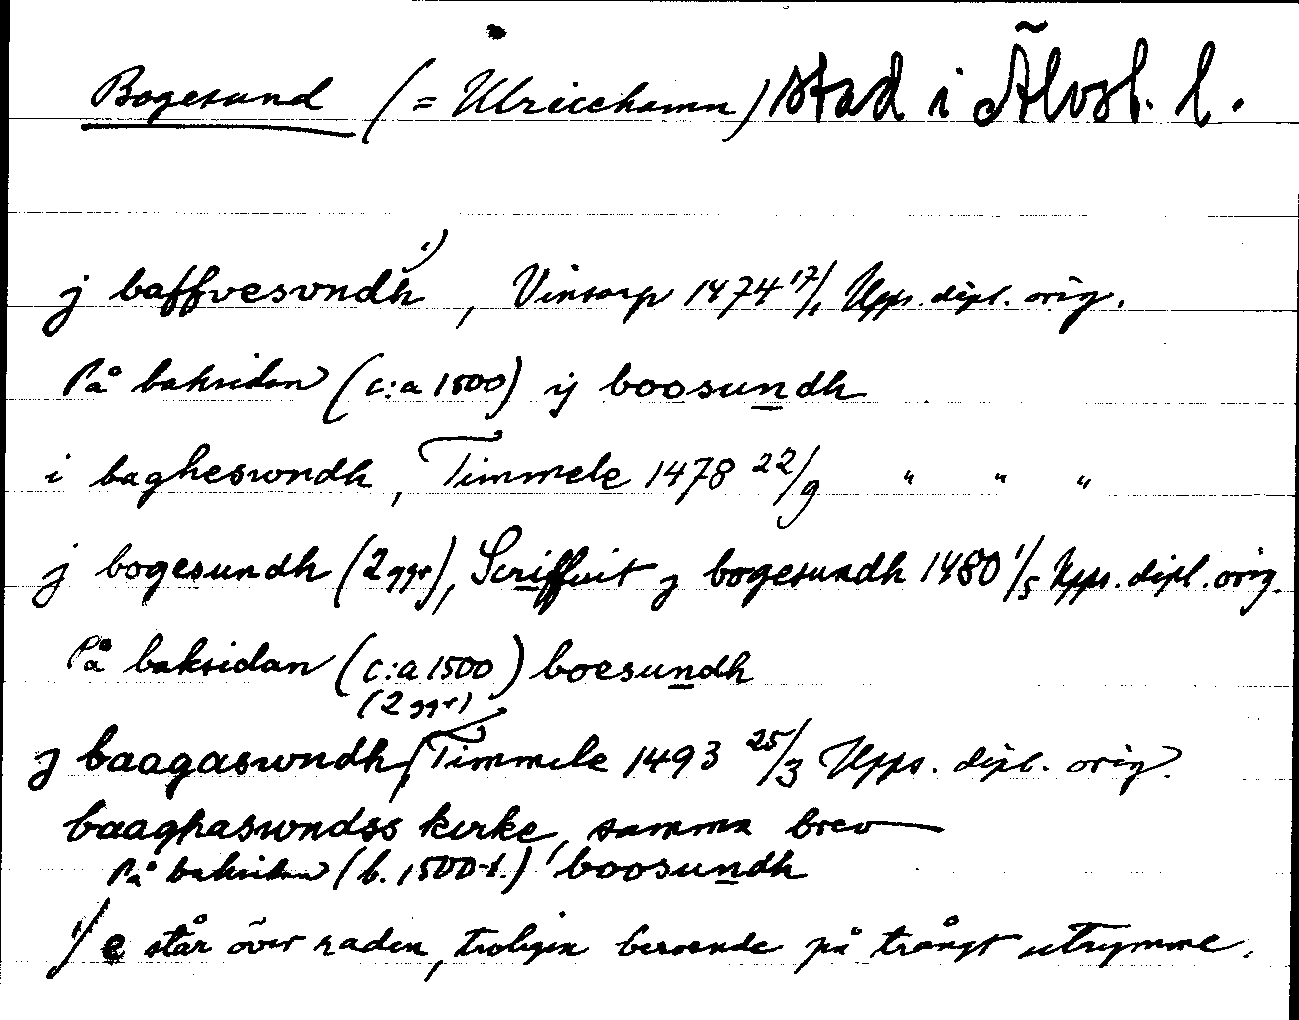 Bogesund (= Ulricehamn) stad i Älvsb. l.
j baffvesvndh 1), Vinsarp 1474 17/1 Upps. dipl. orig.
På baksidan (c:a 1500) ij boosundh
i bagheswndh, Timmele 1478 22/9 " " "
j bogesundh (2 ggr), Scriffuit j bogesundh 1480 1/5 Upps. dipl. orig.
På baksidan (c:a 1500) boesundh
(2 ggr)
j baagaswndh, Timmele 1493 25/3 Upps. dipl. orig.
baaghaswndss kirke, samma brev
På baksidan (b. 1500-t.) boosundh
1/ e står över raden, troligen beroende på trångt utrymme.